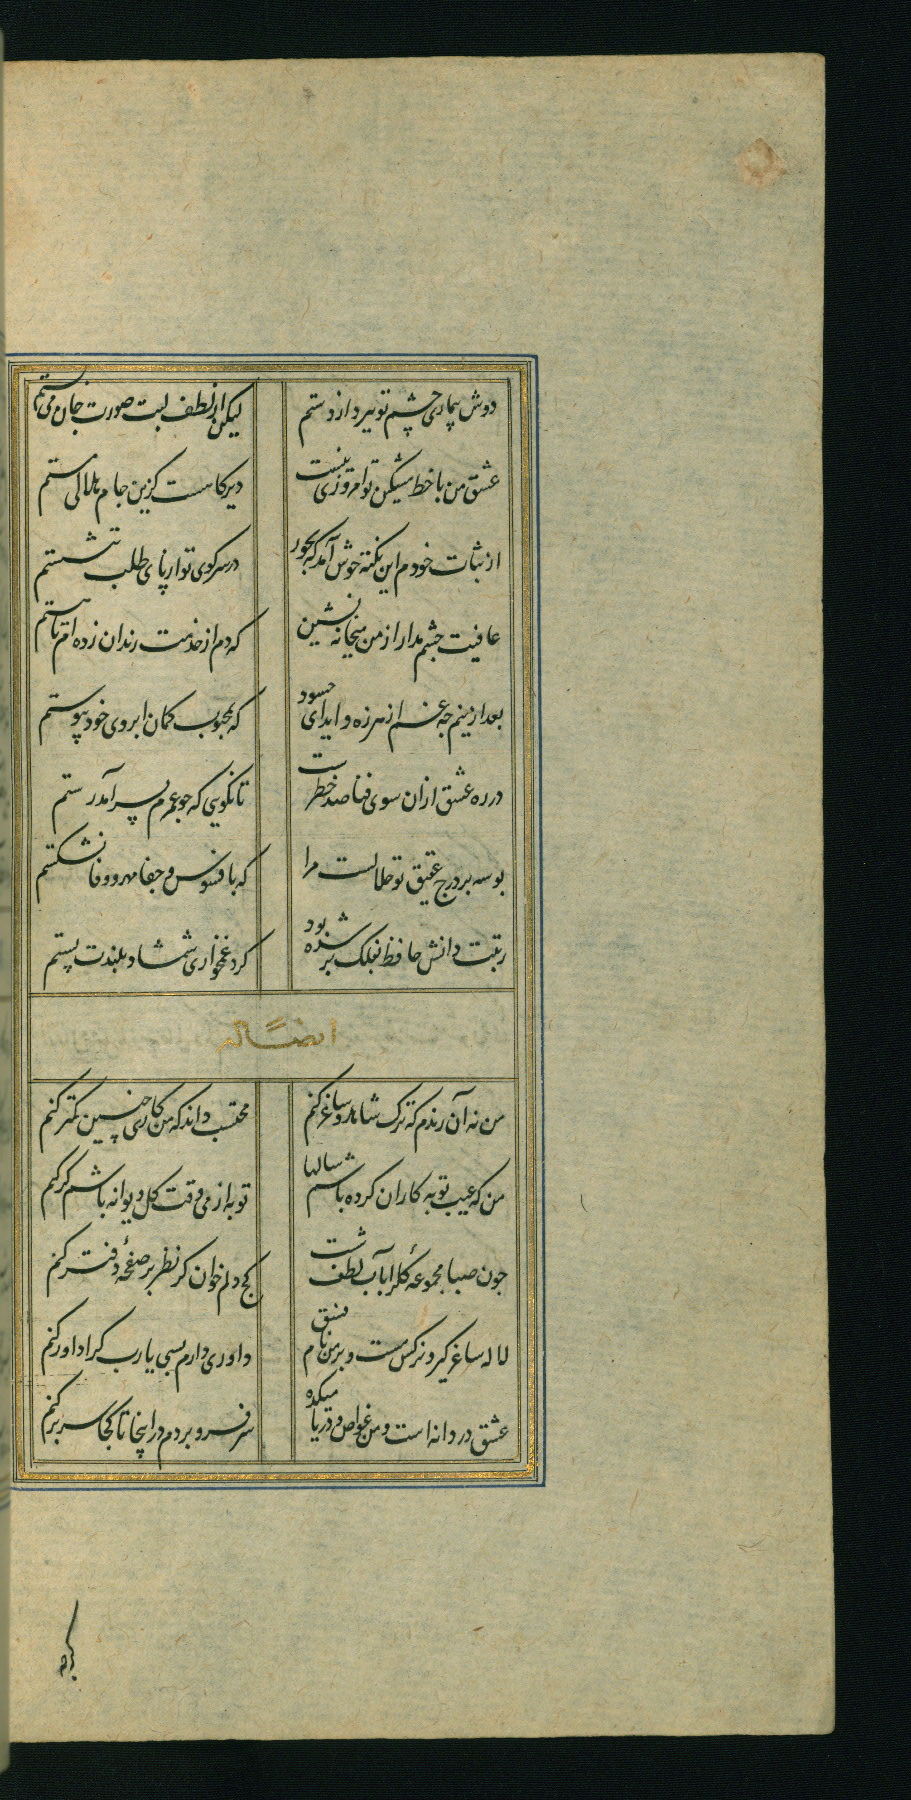 دوش بیماری چشم تو ببرد از دستم لیکن از لطف لبت صورت جان می بستم
عشق من با خط مشکین تو امروزی نیست دیرگاست کزین جام هلالی مستم
از ثبات خودم این نکته خوش آمد که بجور در سر کوی تو از پای طلب ننشستم
عافیت چشم مدار از من میخانه نشین که دم از خدمت رندان زده ام تا هستم
بعد ازینم چه غم از هرزه و ایذای حسود که بمحبوب کمان ابروی خود پیوستم
در ره عشق ازان سوی فنا صد خطرست تا نگویی که چو عمرم بسر آمد رستم
بوسه بر درج عقیق تو حلالست مرا که بافسوس و جفا مهر و وفا نشکستم
رتبت دانش حافظ بفلک بر شده بود کرد غمخواری شمشاد بلندت پستم
ایضاً له
من نه آن رندم که ترک شاهد و ساغر کنم محتسب داند که من کاری چنین کمتر کنم
من که عیب توبه کاران کرده باشم سالها توبه از می وقت گل دیوانه باشم گر کنم
چون صبا مجموعهٔ گل را بآب لطف شست کج دلم خوان گر نظر بر صفحهٔ دفتر کنم
لاله ساغر گیر و نرگس مست و بر من نام فسق داوری دارم بسی یا رب کرا داور کنم
عشق در دانه است و من غواص و دریا میکده سر فرو بردم در اینجا تا کجا سر بر کنم